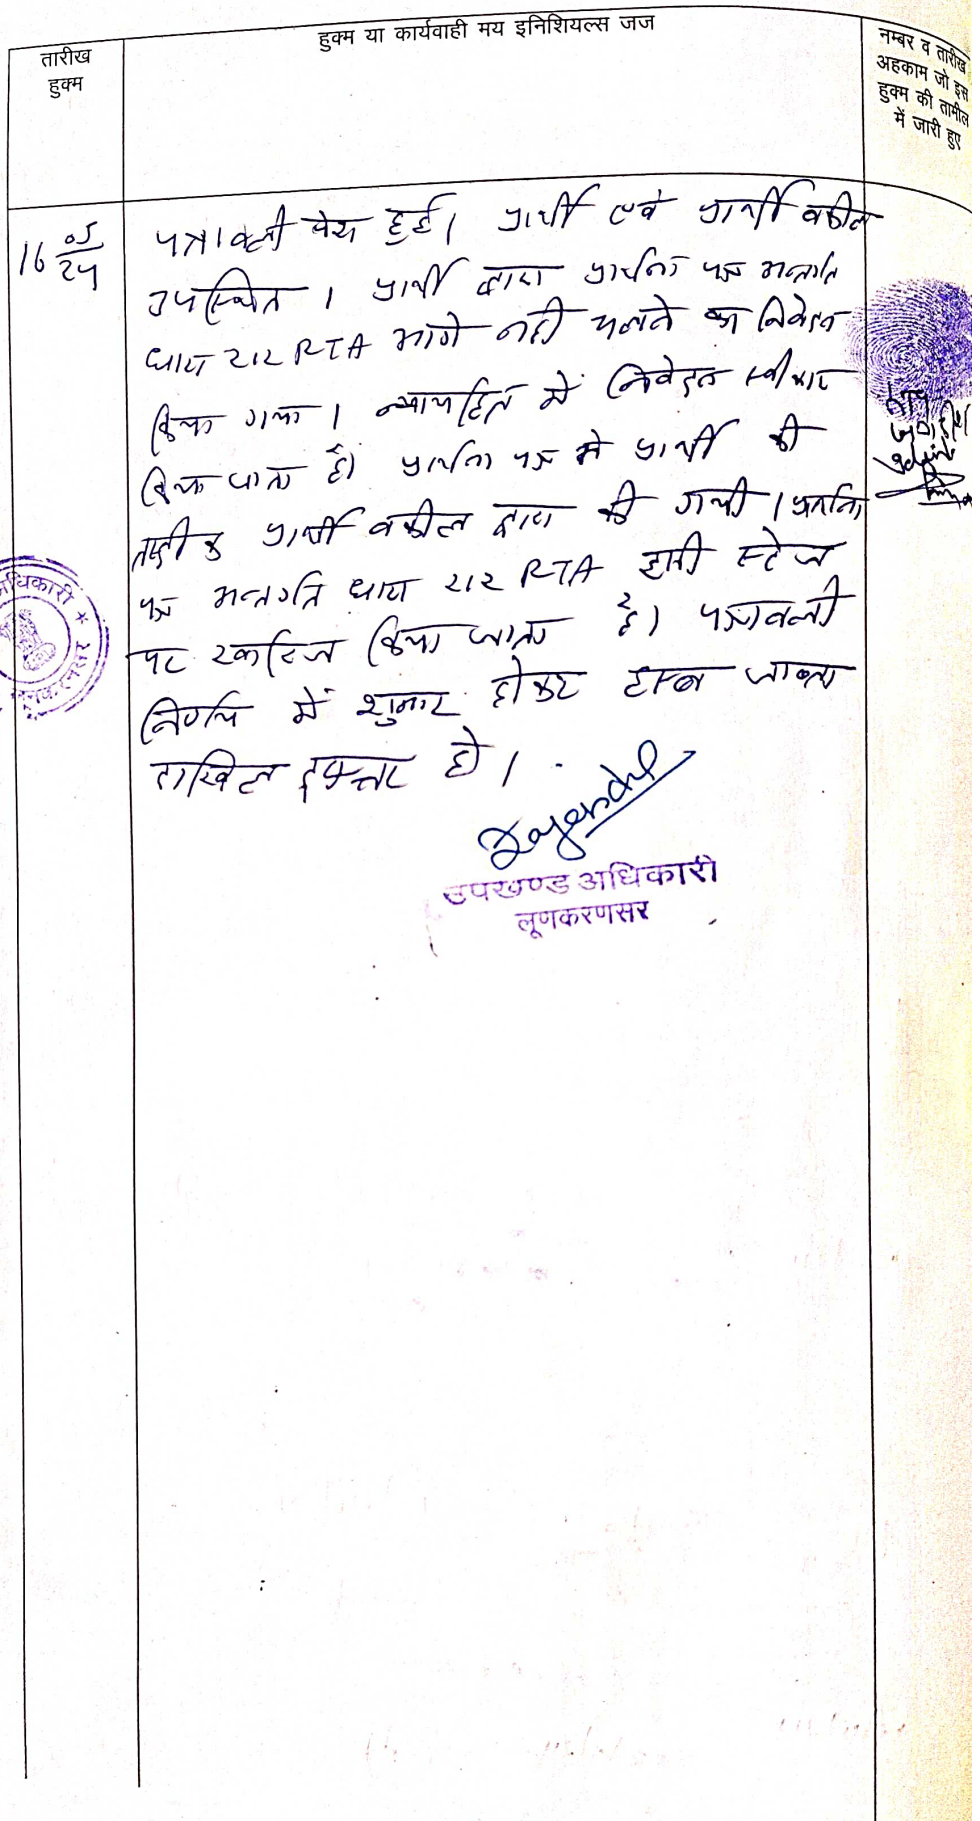 तारीख
हुक्म
हुक्म या कार्यवाही मय इनिशियल्स जज
नम्बर व तारीख
अहकाम जो इस
हुक्म की तामील
में जारी हुए
16 05/24
पत्रावली पेश हुई। प्रार्थी एवं प्रार्थी वकील
उपस्थित। प्रार्थी द्वारा प्रार्थना पत्र अन्तर्गत
धारा 212 RTA आगे नहीं चलाने का निवेदन
किया गया। न्यायहित में निवेदन स्वीकार
किया जाता है। प्रार्थना पत्र में प्रार्थी की
तस्दीक प्रार्थी वकील द्वारा की गयी। प्रार्थना
पत्र अन्तर्गत धारा 212 RTA इसी स्टेज
पर खारिज किया जाता है। पत्रावली
निर्णय में शुमार होकर हस्ब जाब्ता
दाखिल दफ्तर हो।
उपखण्ड अधिकारी
लूणकरणसर